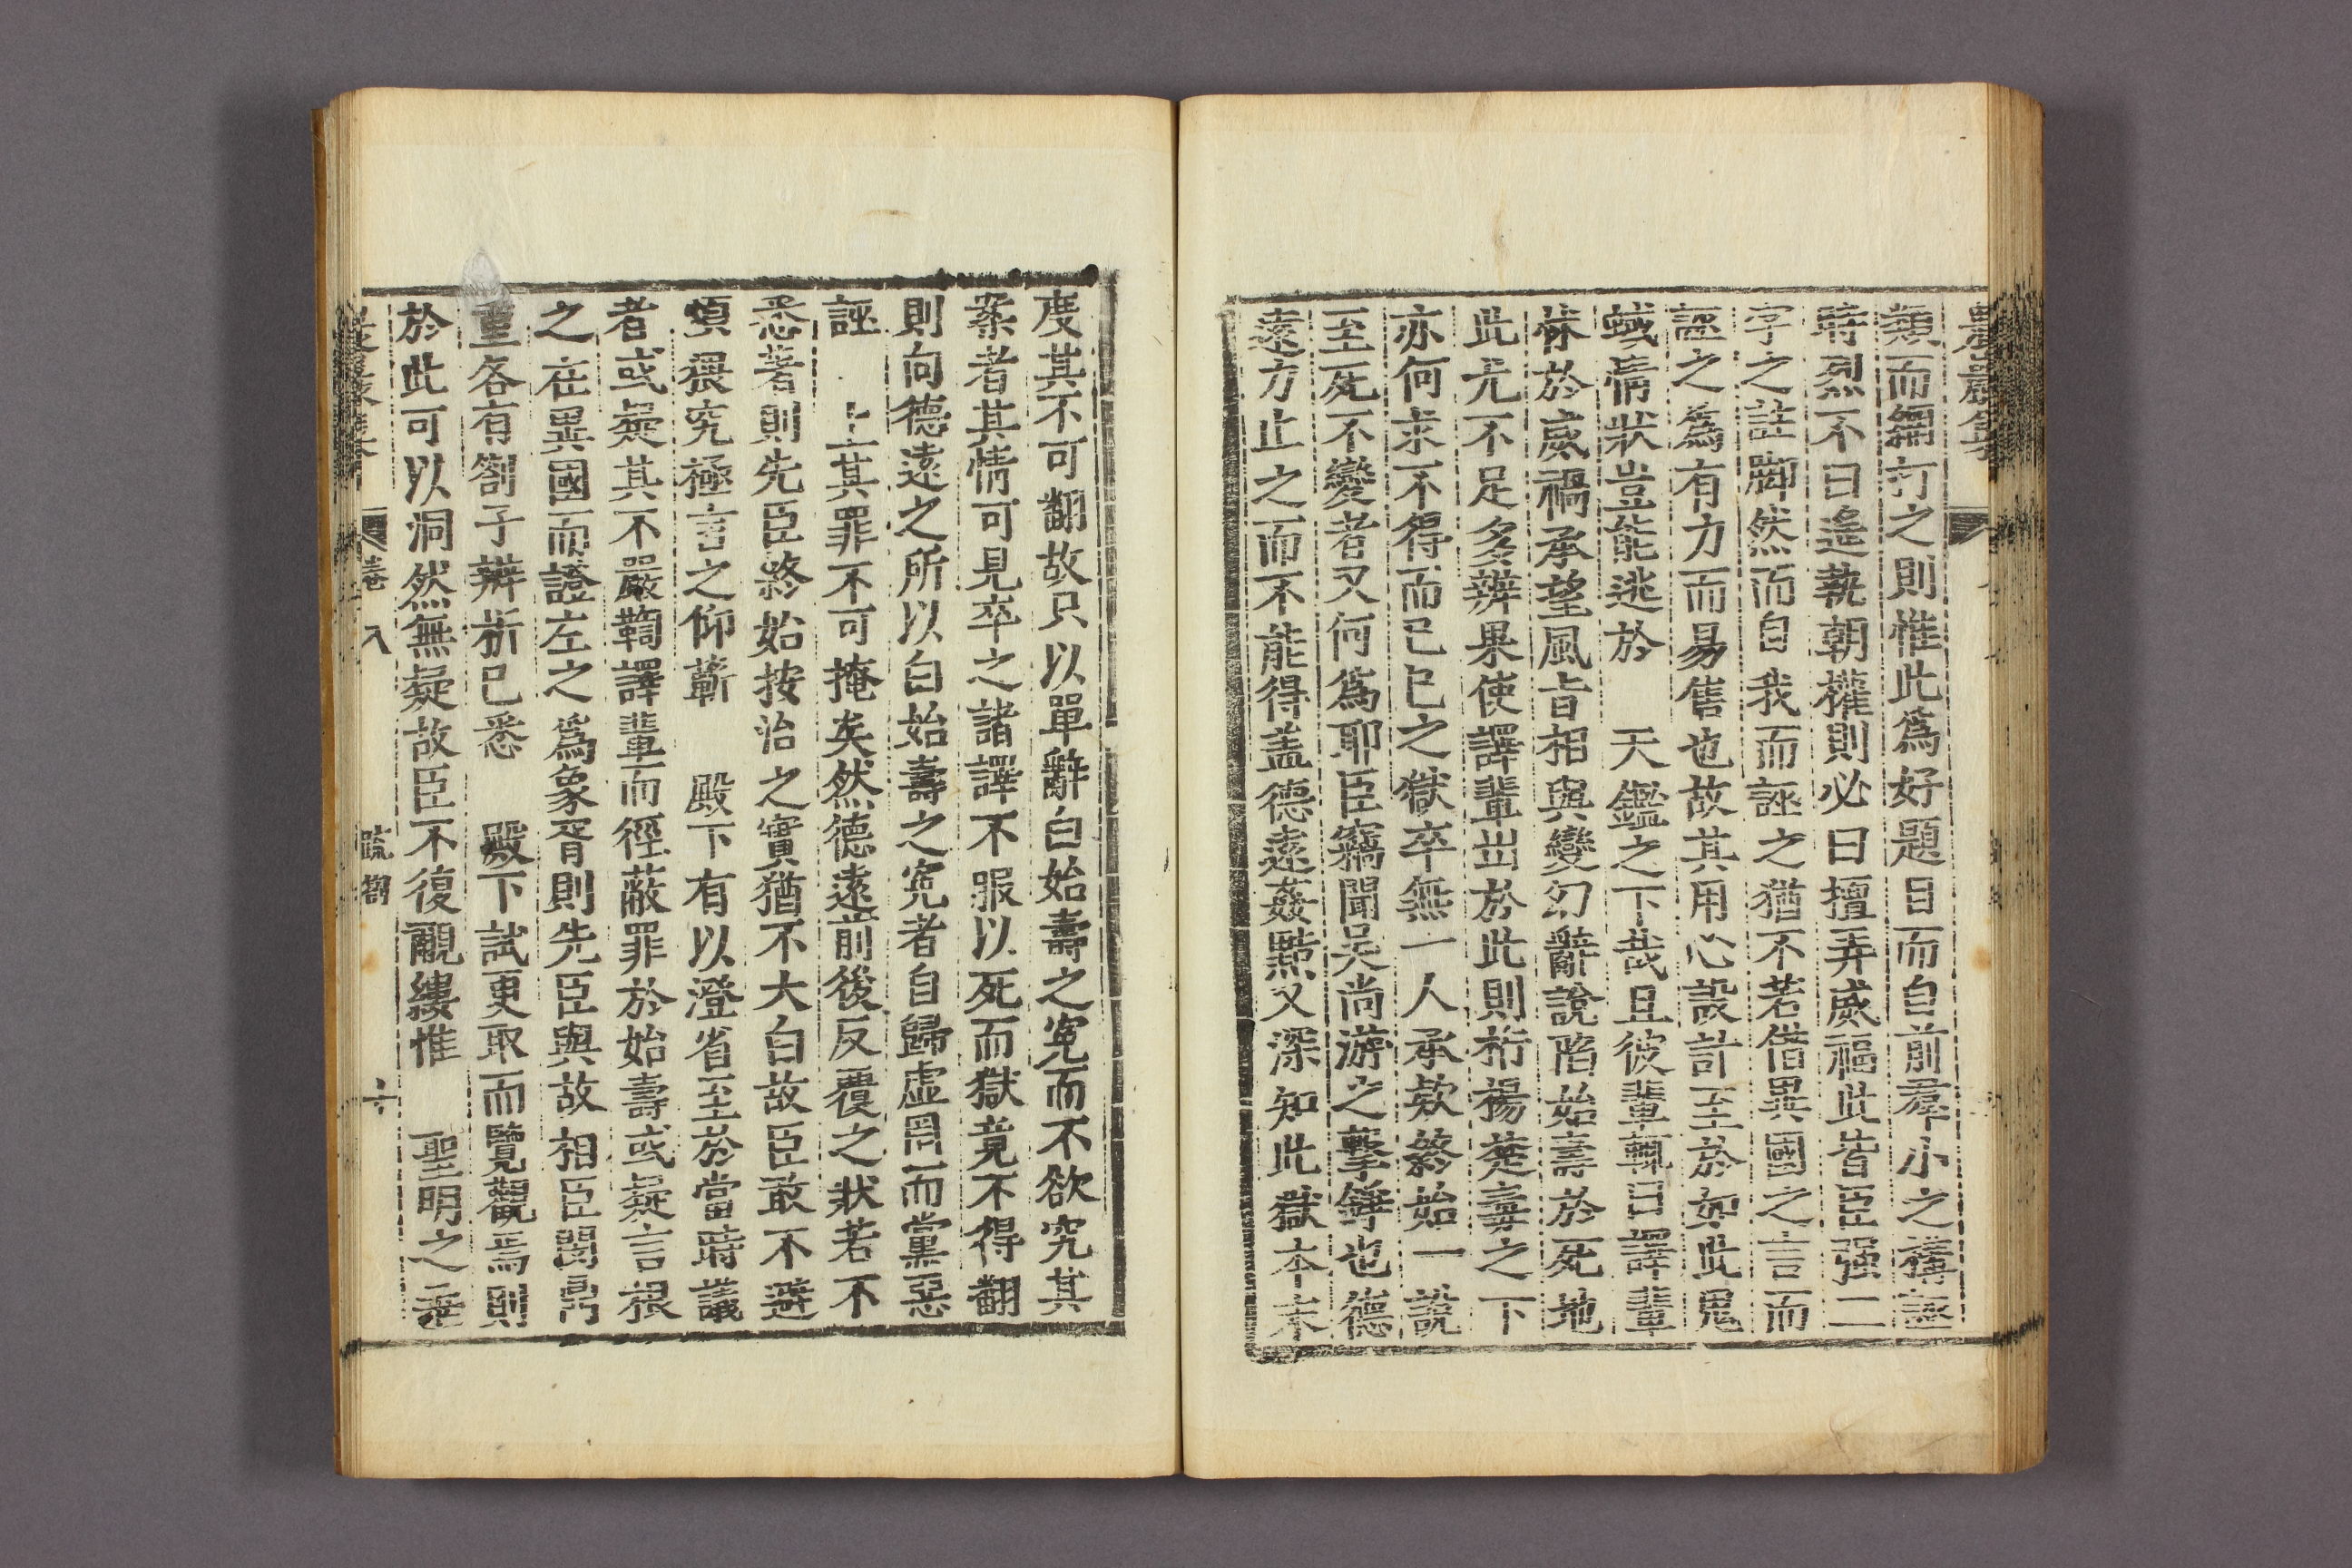 農巖集
類而網打之則惟此爲好題目而自前羣小之搆誣
時烈不曰遙執朝權則必曰擅弄威福此皆臣强二
字之註脚然而自我而誣之猶不若借異國之言而
誣之爲有力而易售也故其用心設計至於如此鬼
蜮情狀豈能逃於 天鑑之下哉且彼輩輒曰譯輩
怵於威禍承望風旨相與變幻辭說陷始壽於死地
此尤不足多辨果使譯輩出於此則桁楊楚毒之下
亦何求不得而已巳之獄卒無一人承款終始一說
至死不變者又何爲耶臣竊聞吳尚游之擊錚也德
遠力止之而不能得盖德遠姦黠又深知此獄本末
度其不可翻故只以單辭白始壽之寃而不欲究其
案者其情可見卒之諸譯不服以死而獄竟不得翻
則向德遠之所以白始壽之寃者自歸虛罔而黨惡
誣 上其罪不可掩矣然德遠前後反覆之狀若不
悉著則先臣終始按治之實猶不大白故臣敢不避
煩猥究極言之仰蘄 殿下有以澄省至於當時議
者或疑其不嚴鞫譯輩而徑蔽罪於始壽或疑言根
之在異國而證左之爲象胥則先臣與故相臣閔鼎
重各有劄子辨析已悉 殿下試更取而覽觀焉則
於此可以洞然無疑故臣不復覼縷惟 聖明之垂
農巖集 卷八 疏劄 十